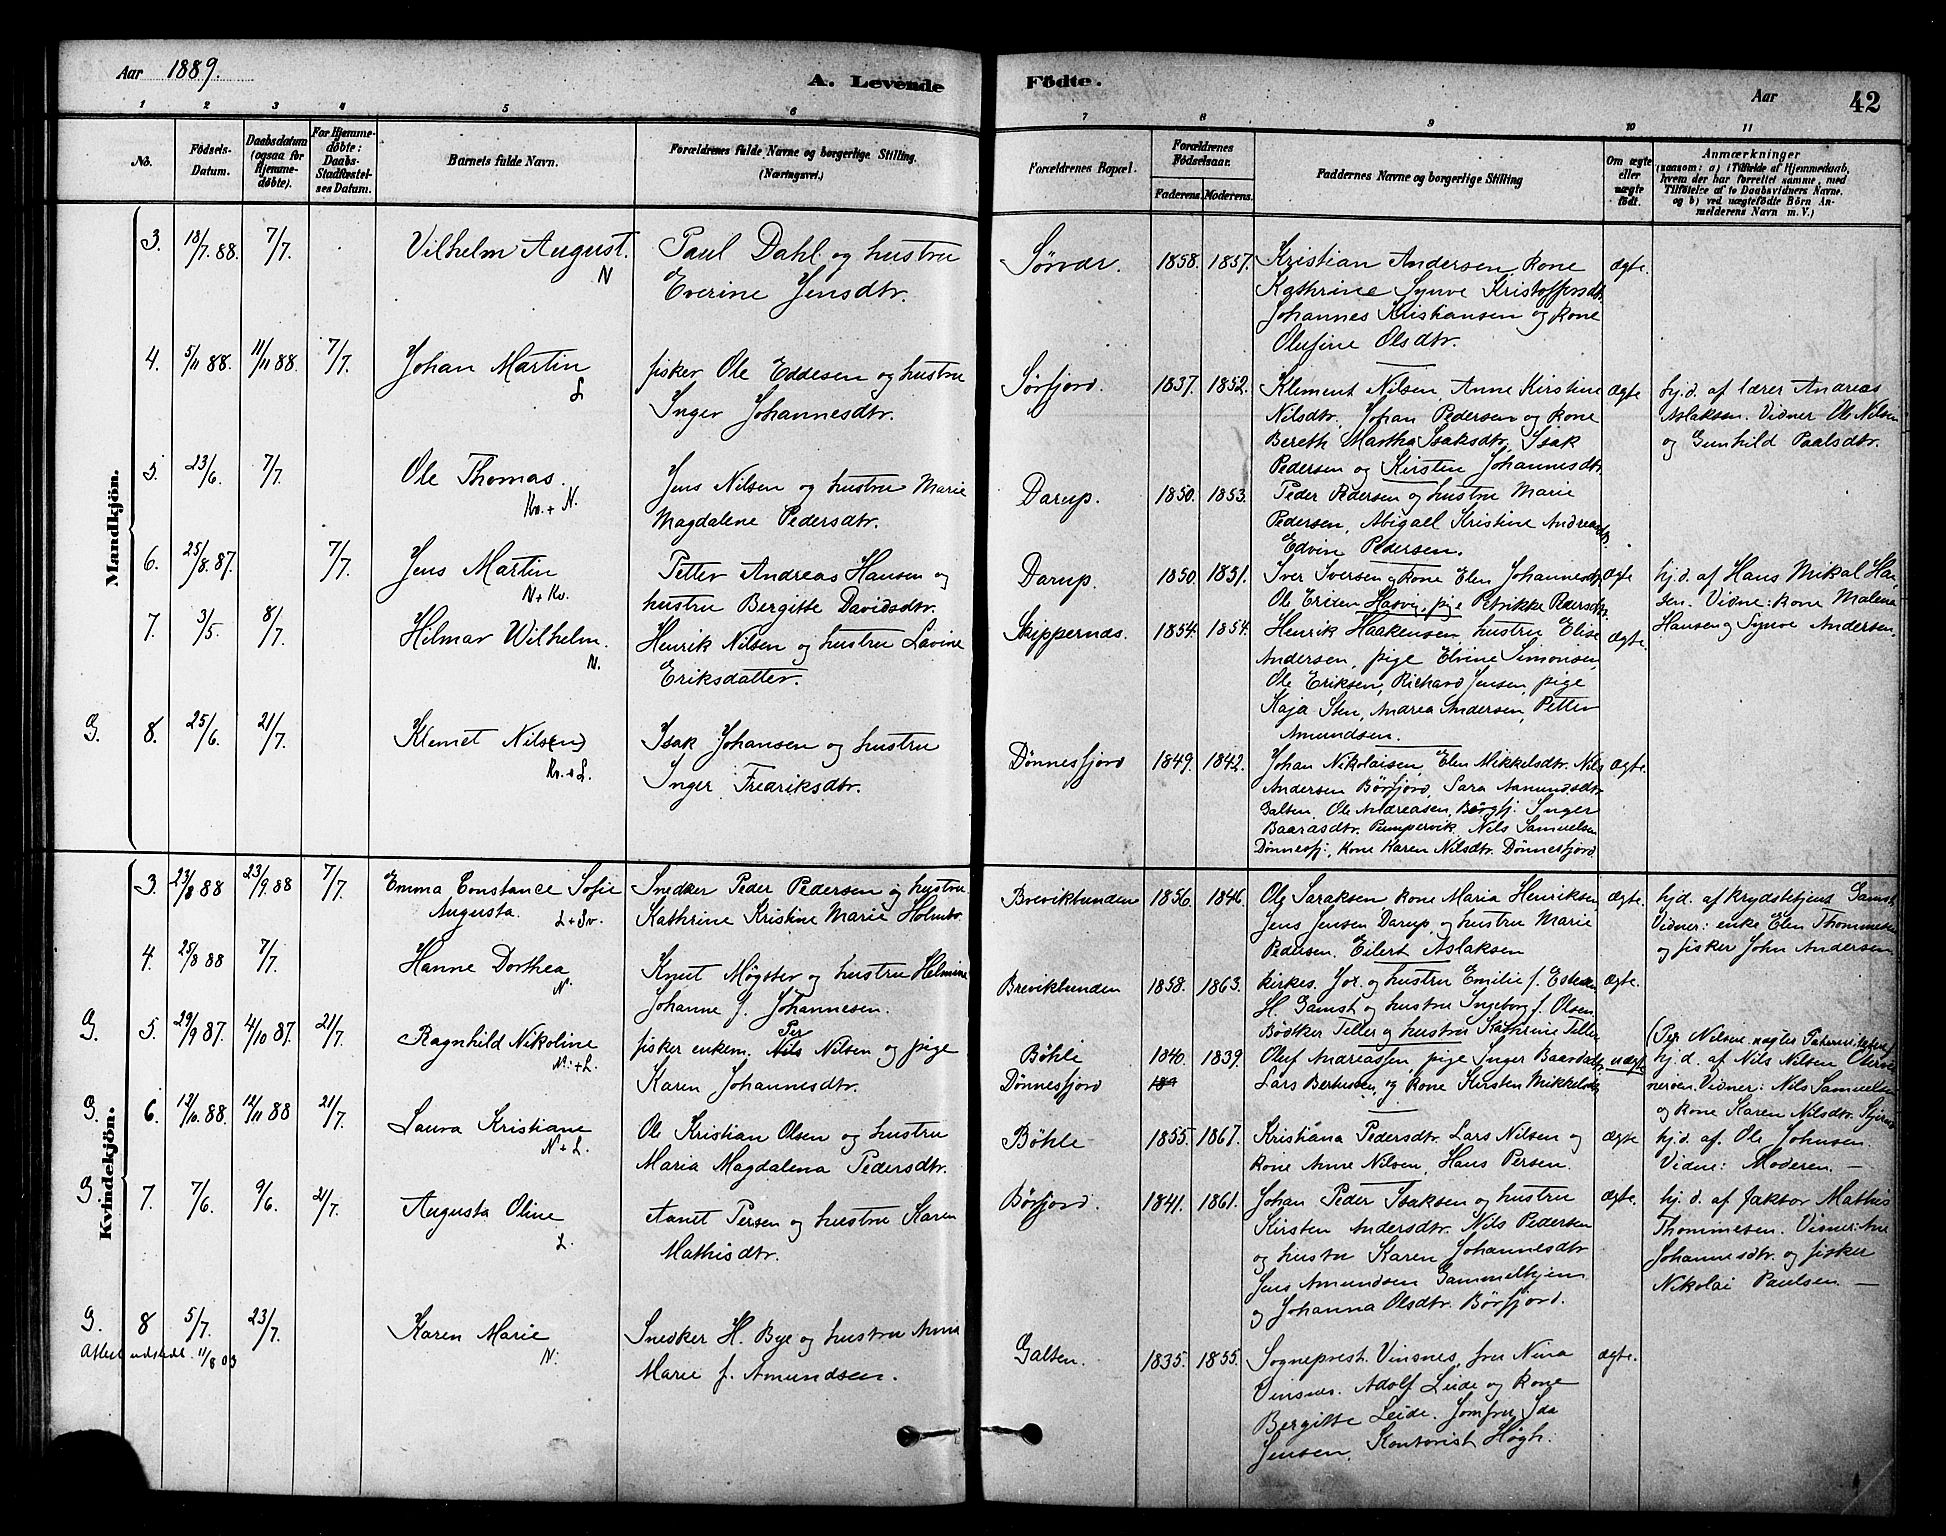 Aar 1889.
A. Levende Födte.
Aar 42
1 2 3 4 5 6 7 8 9 10 11
No.
Födsels-
Datum.
Daabsdatum
(ogsaa for
Hjemme-
døbte).
For Hjemme-
døbte:
Daabs-
Stadfæstel-
ses Datum.
Barnets fulde Navn.
Forældrenes fulde Navne og borgerlige Stilling.
(Næringsvei.)
Forældrenes Bopæl.
Forældrenes
Födselsaar.
Faderens. Moderens.
Faddernes Navne og borgerlige Stilling
Om ægte
eller
uægte
født.
Anmærkninger
(saasom: a) i Tilfælde af Hjemmedaab,
hvem der har forrettet samme, med
Tilføielse af to Daabsvidners Navne.
og b) ved uægtefødte Börn An-
melderens Navn m. V.)
Mandkjön.
3. 18/7. 88. 7/7. Vilhelm August. N
Paul Dahl og hustru
Everine Jensdtr.
Sörvær. 1858. 1857.
Kristian Andersen, kone
Kathrine Synve Kristoffersdtr.
Johannes Kristiansen og kone
Olufine Olsdtr.
ægte.
4. 5/11 88. 11/11 88. 7/7. Johan Martin L
fisker Ole Eddesen og hustru
Inger Johannesdtr.
Sörfjord. 1837. 1852.
Klement Nilsen, Anne Kirstine
Nilsdtr. Johan Pedersen og kone
Bereth Martha Isaksdtr, Isak
Pedersen og Kirsten Johannesdtr.
ægte
hj.d. af lærer Andreas
Aslaksen. Vidner Ole Nilsen
og Gunhild Paalsdtr.
5. 23/6. 7/7. Ole Thomas. Kv. + N.
Jens Nilsen og hustru Marie
Magdalene Pedersdtr.
Darup. 1850. 1853.
Peder Pedersen og hustru Marie
Pedersen, Abigael Kristine Andreasdtr.
Edvin Pedersen.
6. 25/8. 87. 7/7. Jens Martin N + Kv.
Petter Andreas Hansen og
hustru Bergitte Davidsdtr.
Darup. 1850. 1851.
Iver Iversen og kone Elen Johannesdtr
Ole Erixen Hasvig, pige Petrikke Pedersdtr.
ægte
hj.d. af Hans Mikal Han
sen. Vidne: kone Malena
Hansen og Synve Andersen.
7. 3/5. 8/7. Hilmar Wilhelm. N.
Henrik Nilsen og hustru Lavine
Eriksdatter.
Skippernæs. 1854. 1854.
Henrik Haakensen, hustru Elise
Andersen, pige Elvine Simonsen,
Ole Eriksen, Richard Jensen, pige
Kaja Sten, Andrea Andersen, Petter
Amundsen.
ægte.
G. 8. 25/6. 21/7. Klemet Nils(en) Kv. + L.
Isak Johansen og hustru
Inger Fredriksdtr.
Dönnesfjord 1849. 1842.
Johan Nikolaisen, Elen Mikkelsdtr. Nils
Andersen Börfjord, Sara Aamundsdtr
Galten, Ole Andreasen, Börfj. Inger
Baarasdtr. Pumpervik, Nils Samuelsen
Dönnesfj., kone Karen Nilsdtr. Dönnesfjord
ægte.
Kvindekjön.
3. 23/8 88 23/9. 88 7/7. Emma Constance Sofie
Augusta. L + Sv.
Snedker Peder Pedersen og hustru
Kathrine Kristine Marie Holmbo.
Brevikbunden 1856. 1846.
Ole Isaksen kone Maria Henriksen
Jens Jensen Darup, og hustru Marie
Pedersen, Eilert Aslaksen
ægte.
hj.d. af krydsbetjent Gamst.
Vidner: enke Elen Thommesen
og fisker John Andersen
4. 25/8 88 7/7. Hanne Dorthea N.
Knut Mögster og hustru Helmine
Johanne f. Johannesen.
Brevikbunden 1858. 1863.
kirkes. Jor. og hustru Emilie f. Esbensen
H. Gamst og hustru Ingeborg f. Olsen.
Bödker Tiller og hustru Kathrine Tiller
ægte.
G. 5. 29/9 87. 4/10 87. 21/7. Ragnhild Nikoline N. + L.
fisker enkem. Nils Per Nilsen og pige
Karen Johannesdtr.
Böhle 1840. 1839.
Dönnesfjord
Oluf Andreassen, pige Inger Baarasdtr.
Lars Bertersen, og kone Kirsten Mikkelsdtr
uægte
(Per Nilsen nægter Paterniteten)
hj.d. af Nils Nilsen
Vidner: Nils Samuelsen
og kone Karen Nilsdtr.
G. 6. 12/10. 88 12/11 88 21/7. Laura Kristiane N + L.
Ole Kristian Olsen og hustru
Maria Magdalena Pedersdtr.
Böhle 1855. 1867.
Kristiana Pedersdtr. Lars Nilsen og
kone Anne Nilsen, Hans Persen.
ægte
hj.d. af. Ole Johnsen
Vidne: Moderen. —
G. 7. 7/6. 9/6. 21/7. Augusta Oline L.
Aanet Persen og hustru Karen
Mathisdtr.
Börfjord. 1841. 1861.
Johan Peder Isaksen og hustru
Kirsten Andersdtr. Nils Pedersen
og hustru Karen Johannesdtr
Jens Amundsen Gammelhjem
og Johanna Olsdtr. Börfjord.
ægte.
hj.d. af faktor Mathis
Thommesen. Vidner: Ane
Johannesdtr. og fisker
Nikolai Paulsen —
G. 8 5/7. 23/7. Karen Marie N.
Attest udstedt. 11/8 03
Snedker H. Bye og hustru Anna
Marie f. Amundsen.
Galten. 1835. 1855.
Sogneprest Vinsnes, fru Nina
Vinsnes. Adolf Leide og kone
Bergitte Leide. Jomfru Ida
Jensen, Kontorist Högh.
ægte.